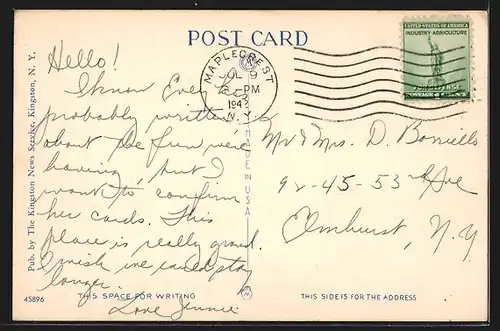 POST CARD
UNITED STATES OF AMERICA
INDUSTRY·AGRICULTURE
FOR DEFENSE
MAPLECREST
JUL 9
PM
1942
N. Y.
Hello!
I know Eve has
probably written
about the fun we're
having, but I
want to confirm
her cards. This
place is really grand.
I wish we could stay
longer.
Love Jennie
Mr & Mrs. D. Borriello
92-45-53rd Ave
Elmhurst, N.Y.
Pub. by The Kingston News Service, Kingston, N. Y.
MADE IN U.S.A.
45896
THIS SPACE FOR WRITING
THIS SIDE IS FOR THE ADDRESS